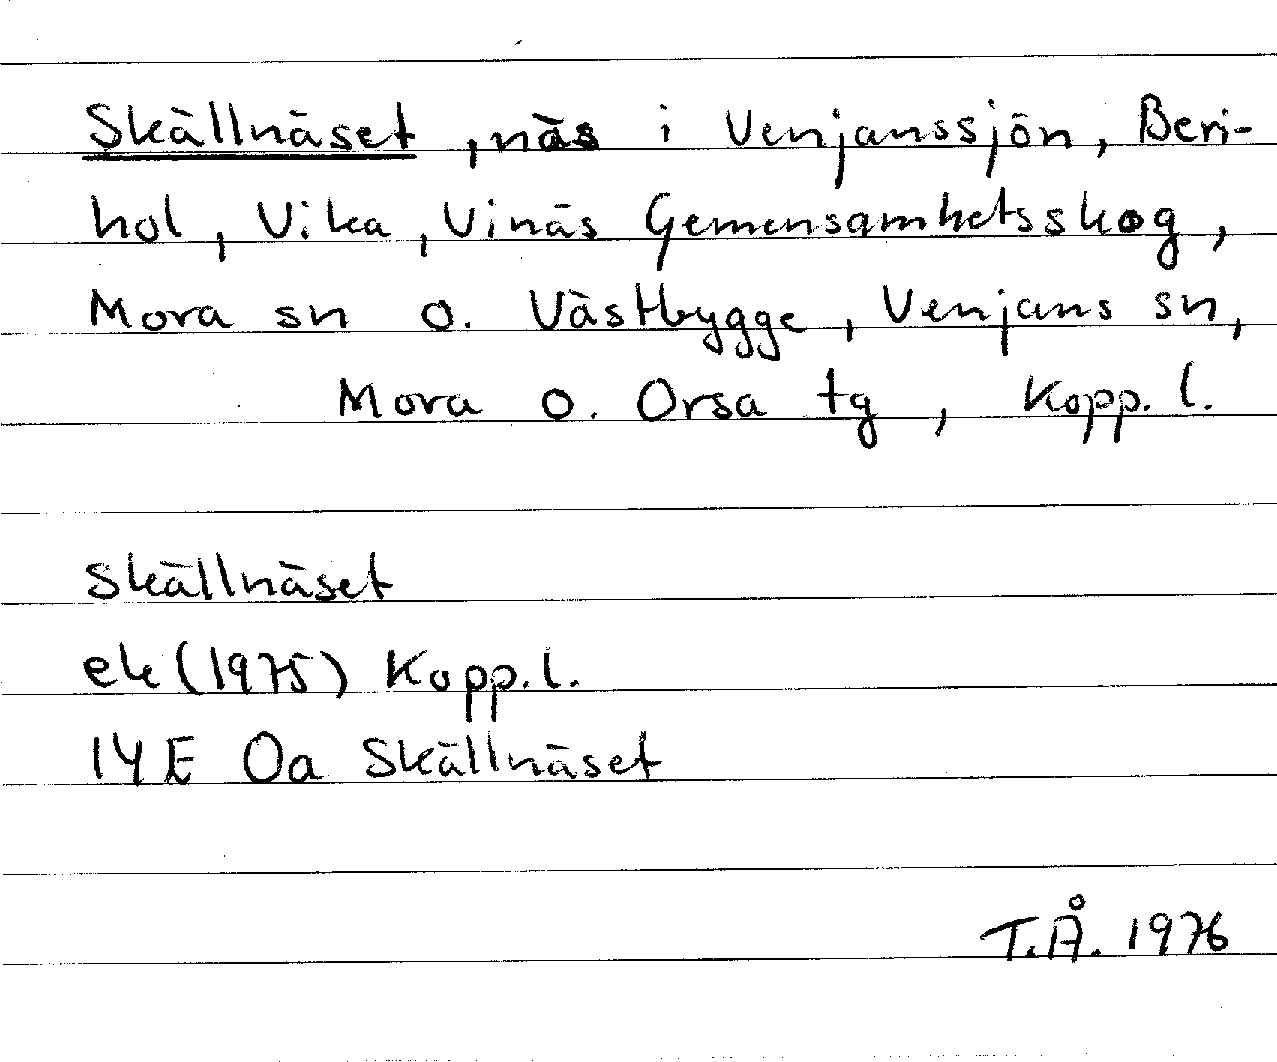 Skällnäset, näs i Venjanssjön, Beri-
hol, Vika, Vinäs Gemensamhetsskog,
Mora sn o. Västbygge, Venjans sn,
Mora o. Orsa tg, Kopp. l.
Skällnäset
ek (1975) Kopp. l.
14E 0a Skällnäset
T.Å. 1976